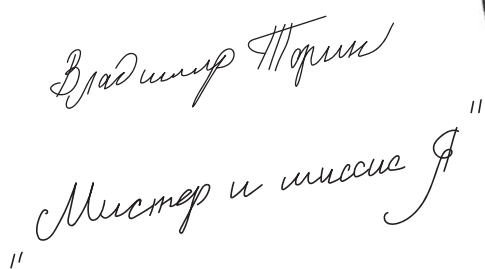 Владимир Торин
"Мистер и миссис Я"